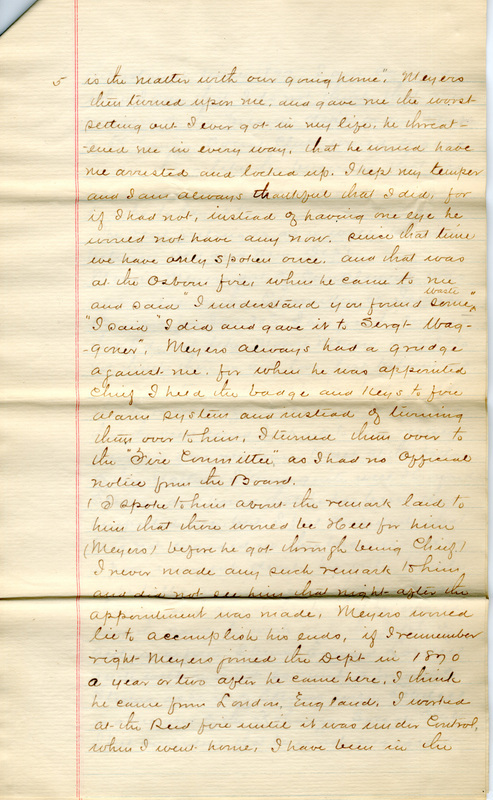 5 is the matter with our going home", Meyers
then turned upon me, and gave me the worst
setting out I ever got in my life, he threat-
-ened me in every way, that he would have
me arrested and locked up. I kept my temper
and I am always thankful that I did, for
if I had not, instead of having one eye he
would not have any now. since that time
we have only spoken once. and that was
at the Osborn fire, when he came to me
and said "I understand you found some waste"
"I said "I did and gave it to Sergt Wag-
-goner", Meyers always had a grudge
against me. for when he was appointed
Chief I held the badge and Keys to fire
alarm system and instead of turning
them over to him, I turned them over to
the "Fire Committee", as I had no Official
notice from the Board.
( I spoke to him about the remark laid to
him that there would be Hell for him
(Meyers) before he got through being Chief.)
I never made any such remark to him,
and did not see him that night after the
appointment was made, Meyers would
lie to accomplish his ends, if I remember
right Meyers joined the Dept in 1870
a year or two after he came here, I think
he came from London, England, I worked
at the Reid fire until it was under Control,
when I went home, I have been in the